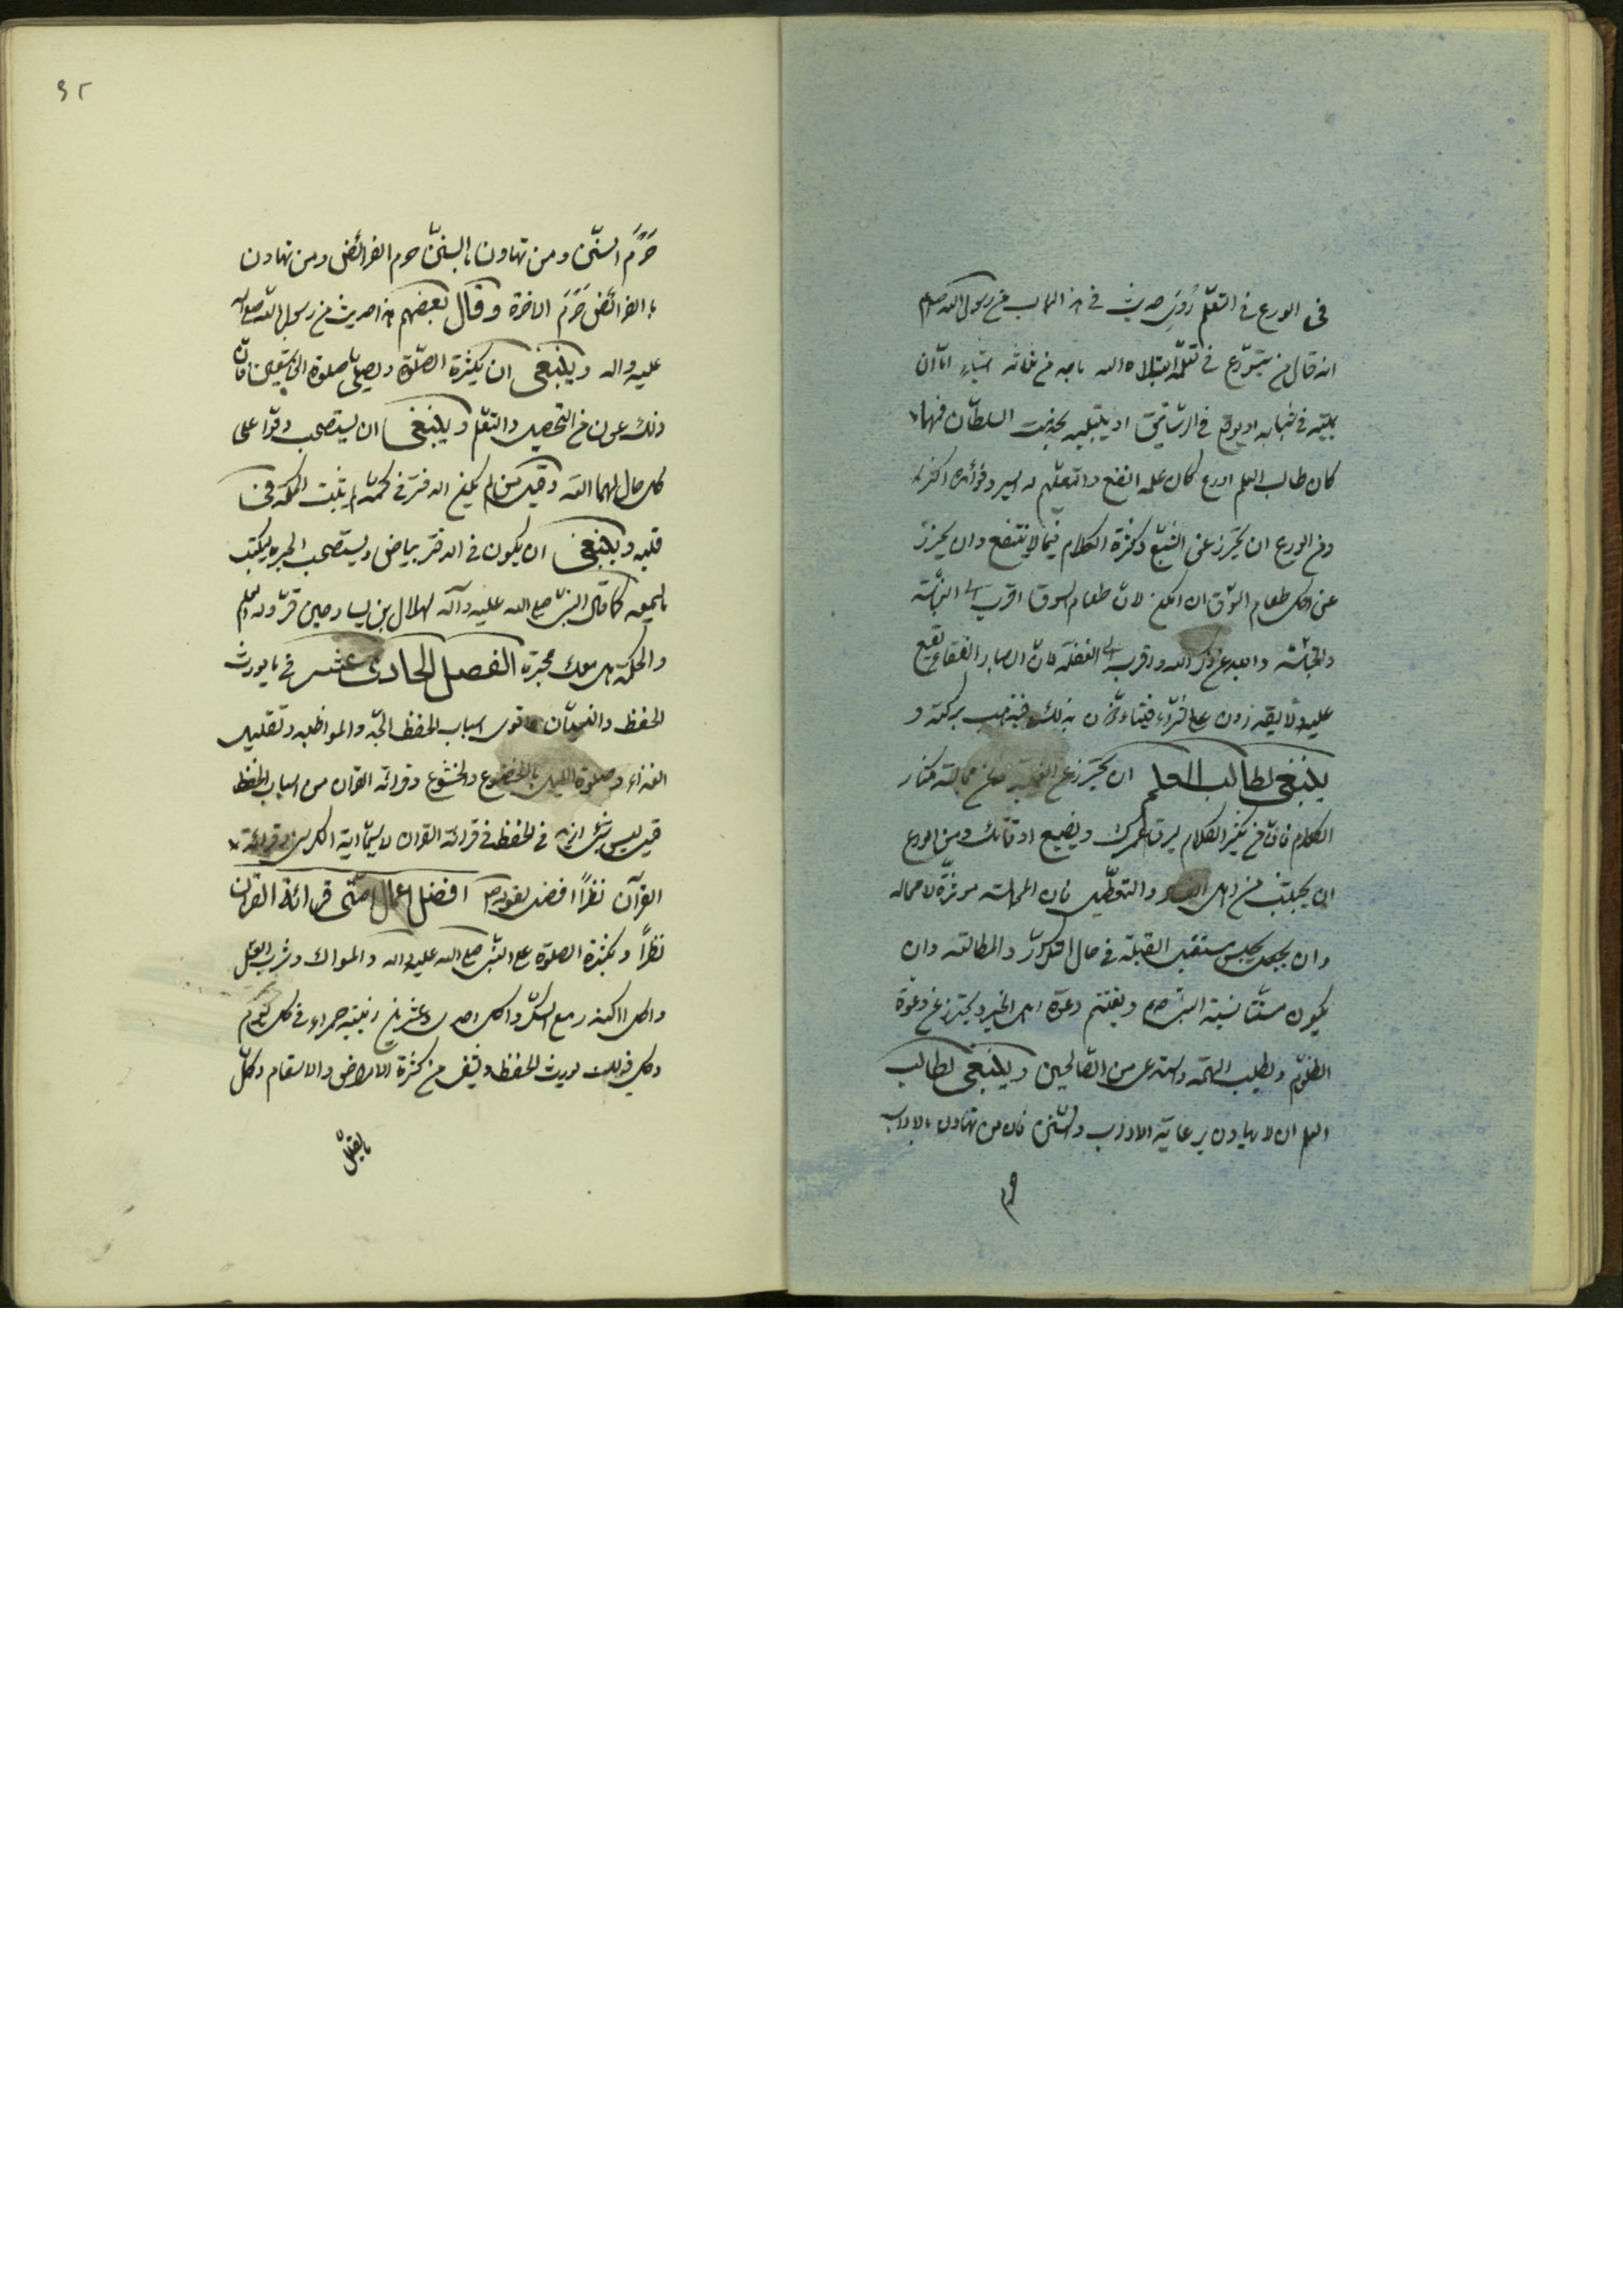 فی الورع فی التعلّم رُوِیَ حدیث فی هذا الباب عن رسول الله صلعم
انه قال من لم یتورّع فی تعلّمه ابتلاه الله باحد من ثلثة اشیاء امّا ان
یمیته فی شبابه او یوقعه فی الرساتیق او یبتلیه بخدمت السلطان فمهما
کان طالب العلم اورع کان علمه انفع والتعلّم له ایسر وفوائده اکثر
ومن الورع ان یحترز عن الشبع وکثرة الکلام فیما لا ینتفع وان یحترز
عن اکل طعام السوق ان امکن لانّ طعام السوق اقرب الی النجاسة
والخباثة وابعد عن ذکر الله واقرب الی الغفلة لانّ ابصار الفقراء تقع
علیه ولا یقدرون علی الشراء فیتاذّون بذلک فیذهب برکته و
ینبغی لطالب العلم ان یحترز عن الغیبة وعن مجالسة مکثار
الکلام فانّ من یکثر الکلام یسرق عمرک ویضیع اوقاتک ومن الورع
ان یجتنب من اهل الفساد والتعطیل فان المجالسة مؤثرة لا محالة
وان یجلس مستقبل القبلة فی حال التکرار والمطالعة وان
یکون مستنّا بسنة النبی صلعم ویغتنم دعوة اهل الخیر ویحترز عن دعوة
المظلوم ویطلب الهمّة واستدعی من الصّالحین وینبغی لطالب
العلم ان لا یتهاون برعایة الاداب والسّنن فان من تهاون بالاداب
حرم
۹۲
حَرُمَ السنّن ومن تهاون بالسننّ حرم الفرائض ومن تهاون
بالفرائض حَرُمَ الاخرة وقال بعضهم هذا حدیث من رسول الله صلی الله
علیه واله وینبغی ان یکثرة الصّلوة ویصلّی صلوة الخاشعین فانّ
ذلک عون من التحصیل والتعلّم وینبغی ان یستصحب دفترا علی
کل حال لیطالعه وقیل من لم یکن الدفتر فی کمّه لم یثبت الحکمة فی
قلبه وینبغی ان یکون فی الدفتر بیاض ویستصحب المحبرة لیکتب
ما یسمعه کما قال النبیّ صلی الله علیه وآله لهلال بن یسار حین قرّر له العلم
والحکمة هل معک محبرة الفصل الحادی عشر فی ما یورث
الحفظ والنسیان واقوی اسباب الحفظ الجدّ والمواظبة وتقلیل
الغذاء وصلوة اللیل بالخضوع والخشوع وقرائة القران من اسباب الحفظ
قیل لیس شیء ازید فی الحفظ من قرائة القران لاسیّما ایة الکرسی وقرائة
القرآن نظرًا افضل لقوله ص افضل اعمال امّتی قرائة القرآن
نظرًا وتکثرة الصلوة علی النبیّ صلی الله علیه واله والسواک وشرب العسل
واکل الکندر مع السکّر واکل احدی وعشرین زبیبة حمراء فی کل یوم
وکل ذلک یورث الحفظ ویشفی من کثرة الامراض والاسقام وکلّ
ما یقلّل